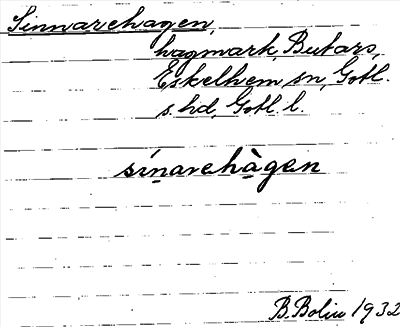 Sinnarehagen,
hagmark, Butars,
Eskelhem sn, Gotl.
s. hd, Gotl. l.
sínarehàgen
B. Bolin 1932